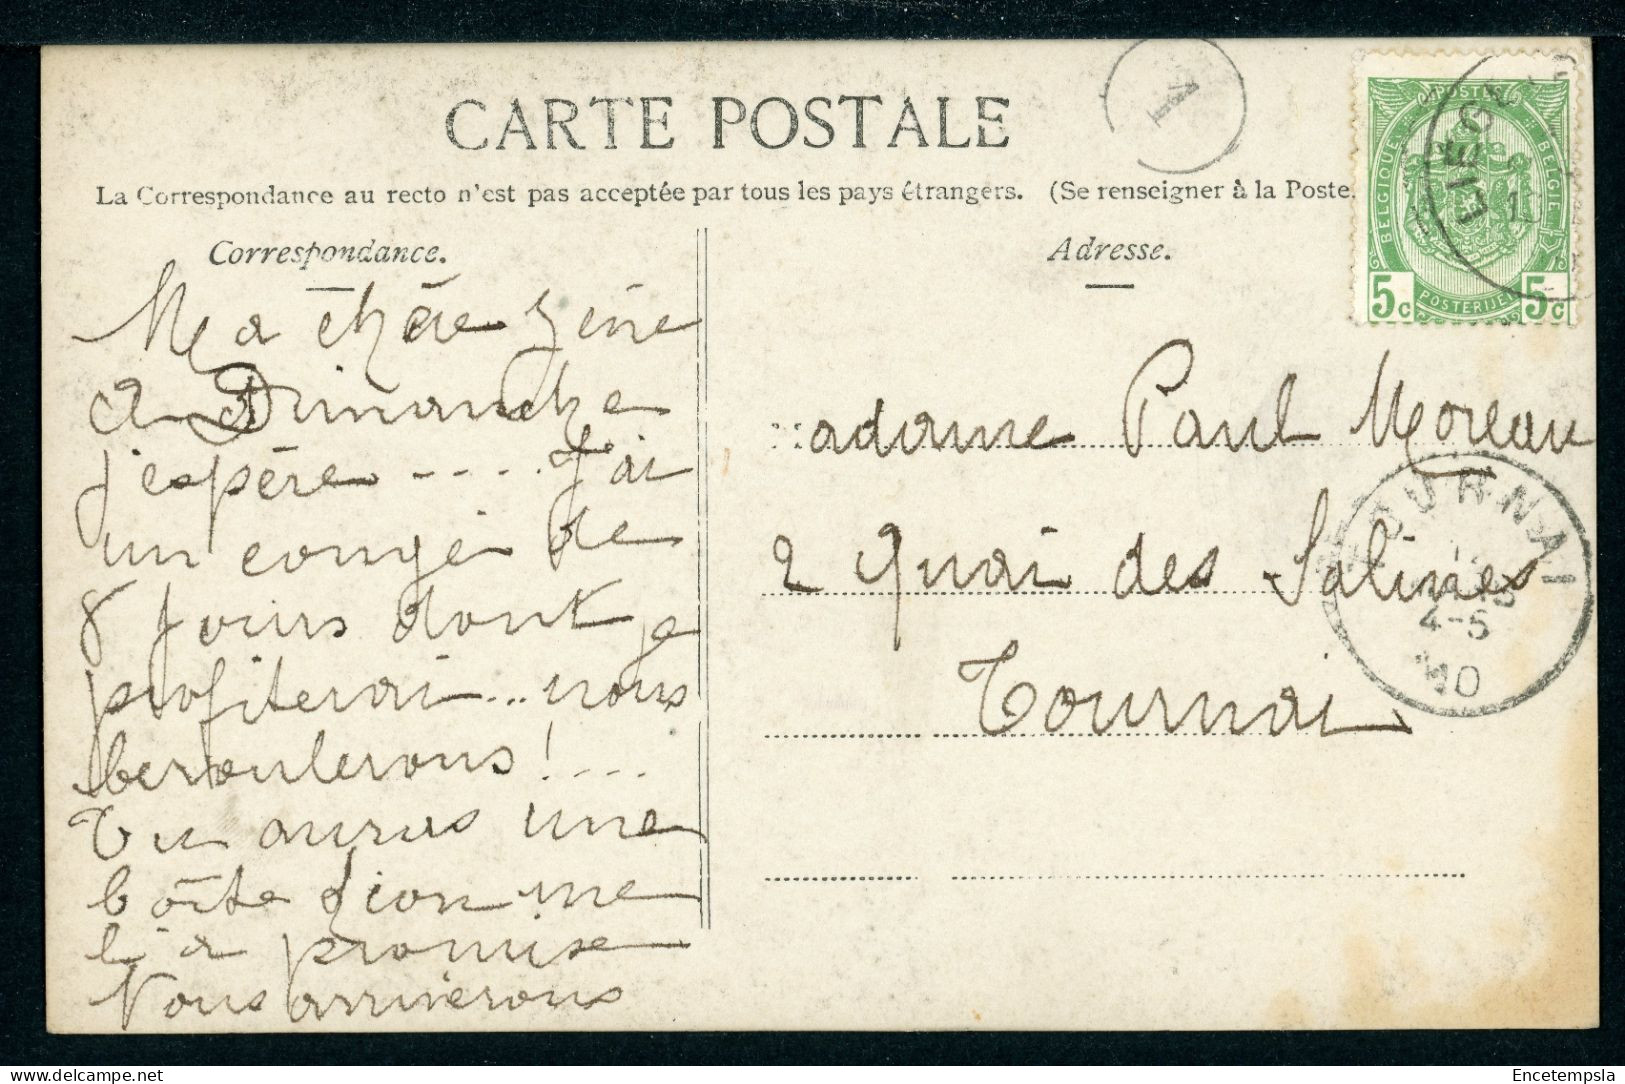 CARTE POSTALE
1
La Correspondance au recto n'est pas acceptée par tous les pays étrangers. (Se renseigner à la Poste.
Correspondance.
Adresse.
Ma chère Zéne
A Dimanche
j'espère ---. J'ai
un congé de
8 jours dont je
profiterai... nous
beroulerons! ....
Tu auras une
boîte d'ion me
l'a promise
Nous arriverons
POSTES
BELGIQUE
BELGIE
5c
POSTERIJEN
5c
LIEGE
madame Paul Moreau
2 Quai des Salines
Tournai
TOURNAI
4-5
10
delcampe.net
Encetempsla